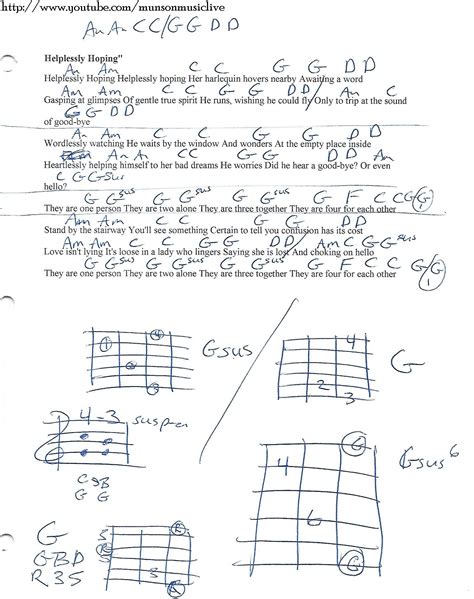 http://www.youtube.com/munsonmusiclive
Am Am C C / G G D D
Helplessly Hoping"
Am Am C C G G D D
Helplessly Hoping Helplessly hoping Her harlequin hovers nearby Awaiting a word
Am Am C C G G D D Am C
Gasping at glimpses Of gentle true spirit He runs, wishing he could fly Only to trip at the sound
G G D D
of good-bye
Am Am C C G G D D
Wordlessly watching He waits by the window And wonders At the empty place inside
Am Am CC G G D D Am
Heartlessly helping himself to her bad dreams He worries Did he hear a good-bye? Or even
C G Gsus
hello?
G Gsus G Gsus G Gsus G F C C G/G
They are one person They are two alone They are three together They are four for each other
Am Am C C G G D D
Stand by the stairway You'll see something Certain to tell you confusion has its cost
Am Am C C G G D D Am C G Gsus
Love isn't lying It's loose in a lady who lingers Saying she is lost And choking on hello
G Gsus G Gsus G Gsus G F C C G/G
They are one person They are two alone They are three together They are four for each other
1 4 2 3 Gsus
4 2 3 G
4-3
C B
G G
4 6 Gsus6
G
GBD
R35
5 R 3